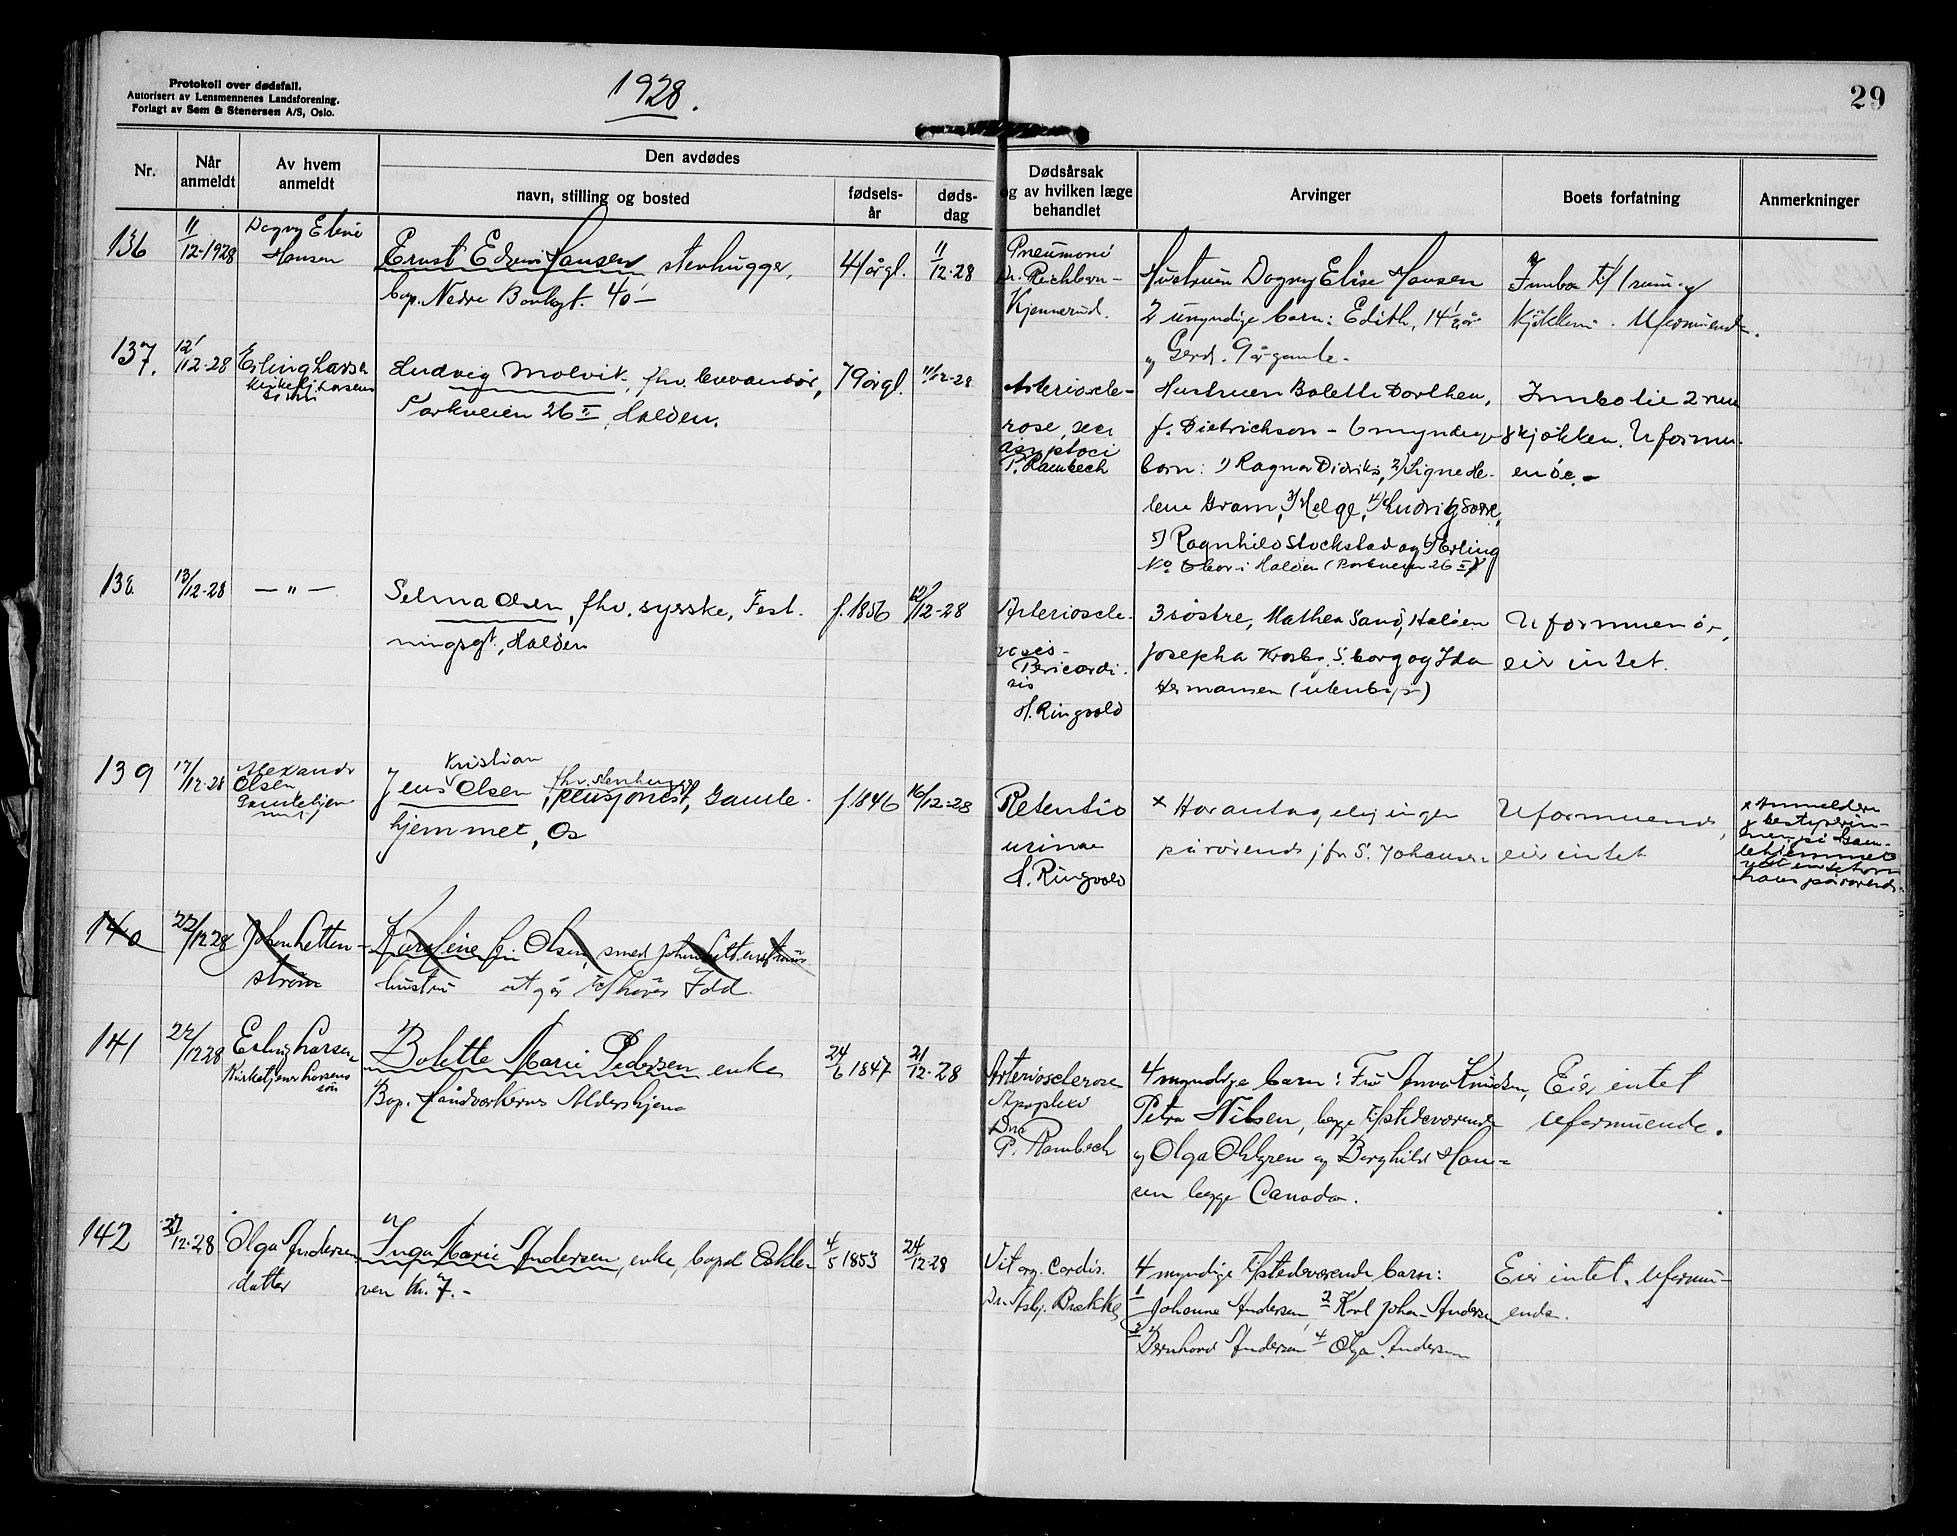 Protokoll over dødsfall.
Autorisert av Lensmennenes Landsforening.
Forlagt av Sem & Stenersen A/S, Oslo.
1928.
29
Nr.
Når
anmeldt
Av hvem
anmeldt
Den avdødes
navn, stilling og bosted
fødsels-
år
døds-
dag
Dødsårsak
og av hvilken læge
behandlet
Arvinger
Boets forfatning
Anmerkninger
136
11/12-1928
Dagny Elise
Hansen
Ernst Edvin Hansen, stenhugger,
bop. Nedre Bankgt. 40 -
41 årgl.
11/12-28
Pneumoni
Dr. Reichborn-
Kjennerud.
Hustruen Dagny Elise Hansen
2 umyndige barn: Edith, 14 1/2 år
og Gerd. 9 år gamle.
Innbo til 1 rum og
kjøkken. Uformuende.
137.
12/12-28
Erling Larsen
kirketj. Larsens
sønn
Ludvig Molvik, fhv. leverandør,
Parkveien 26 II, Halden.
79 årgl.
11/12-28
Arterioscle-
rose, sen
P. Rambech
Hustruen Bolette Dorthea,
f. Dietrichson - 6 myndige
barn: 1) Ragnar Didrik, 2) Signe He-
lene Gram, 3) Helge, 4) Ludvig
5) Ragnhild Stockstad og 6) Erling
No bor i Halden (Parkveien 26 II)
Innbo til 2 rum
& kjøkken. Uformu-
ende. -
138
13/12-28
— " —
Selma Olsen, fhv. syerske, Fest-
ningsgt., Halden
f. 1856
12/12-28
Arterioscle-
rosis-
H. Ringvold
3 søstre, Mathea Sand, Halden
Josepha Krosby, S.borg og Ida
Hermansen (utenbys)
Uformuende,
eier intet.
139
17/12-28
Olsen
Gamlehjem-
met
Jens Kristian Olsen, fhv. stenhugger,
pensjonist, Gamle-
hjemmet, Os
f. 1846
16/12-28
Retentio
urinae
H. Ringvold
x Har antagelig ingen
pårørende, jfr S. Johansen
Uformuende,
eier intet
x Anmelderen
& bestyrerin-
nen på Gam-
lehjemmet
hans pårørende.
140
22/12 28
JohanLetten-
strøm
Karoline f. Olsen, smed Johan Lettenstrøms
hustru utgår Idd
141
22/12 28
Erling Larsen
Kirketjener Larsens
sön
Bolette Marie Pedersen enke
Bop. Håndverkernes Aldershjem
24/6 1847
21/12-28
Arteriosclerose
Apoplexi
P. Rambech
4 myndige barn: Fru Anna Knudsen,
Petra Nilsen, begge tilstedeværende
og Olga Ohlgren og Borghild Han-
sen begge Canada.
Eier intet
uformuende.
142
27/12-28
Olga Andersen
datter
Inga Marie Andersen, enke, bopel Oskle-
ven Nr. 7. -
4/5 1853
24/12-28
Vit. org. Cordis.
Dr. Asbj. Brekke
4 myndige tilstedeværende barn:
1 Johanne Andersen, 2 Karl Johan Andersen
3 Bernhard Andersen 4 Olga Andersen
Eier intet. Uformu-
ende.